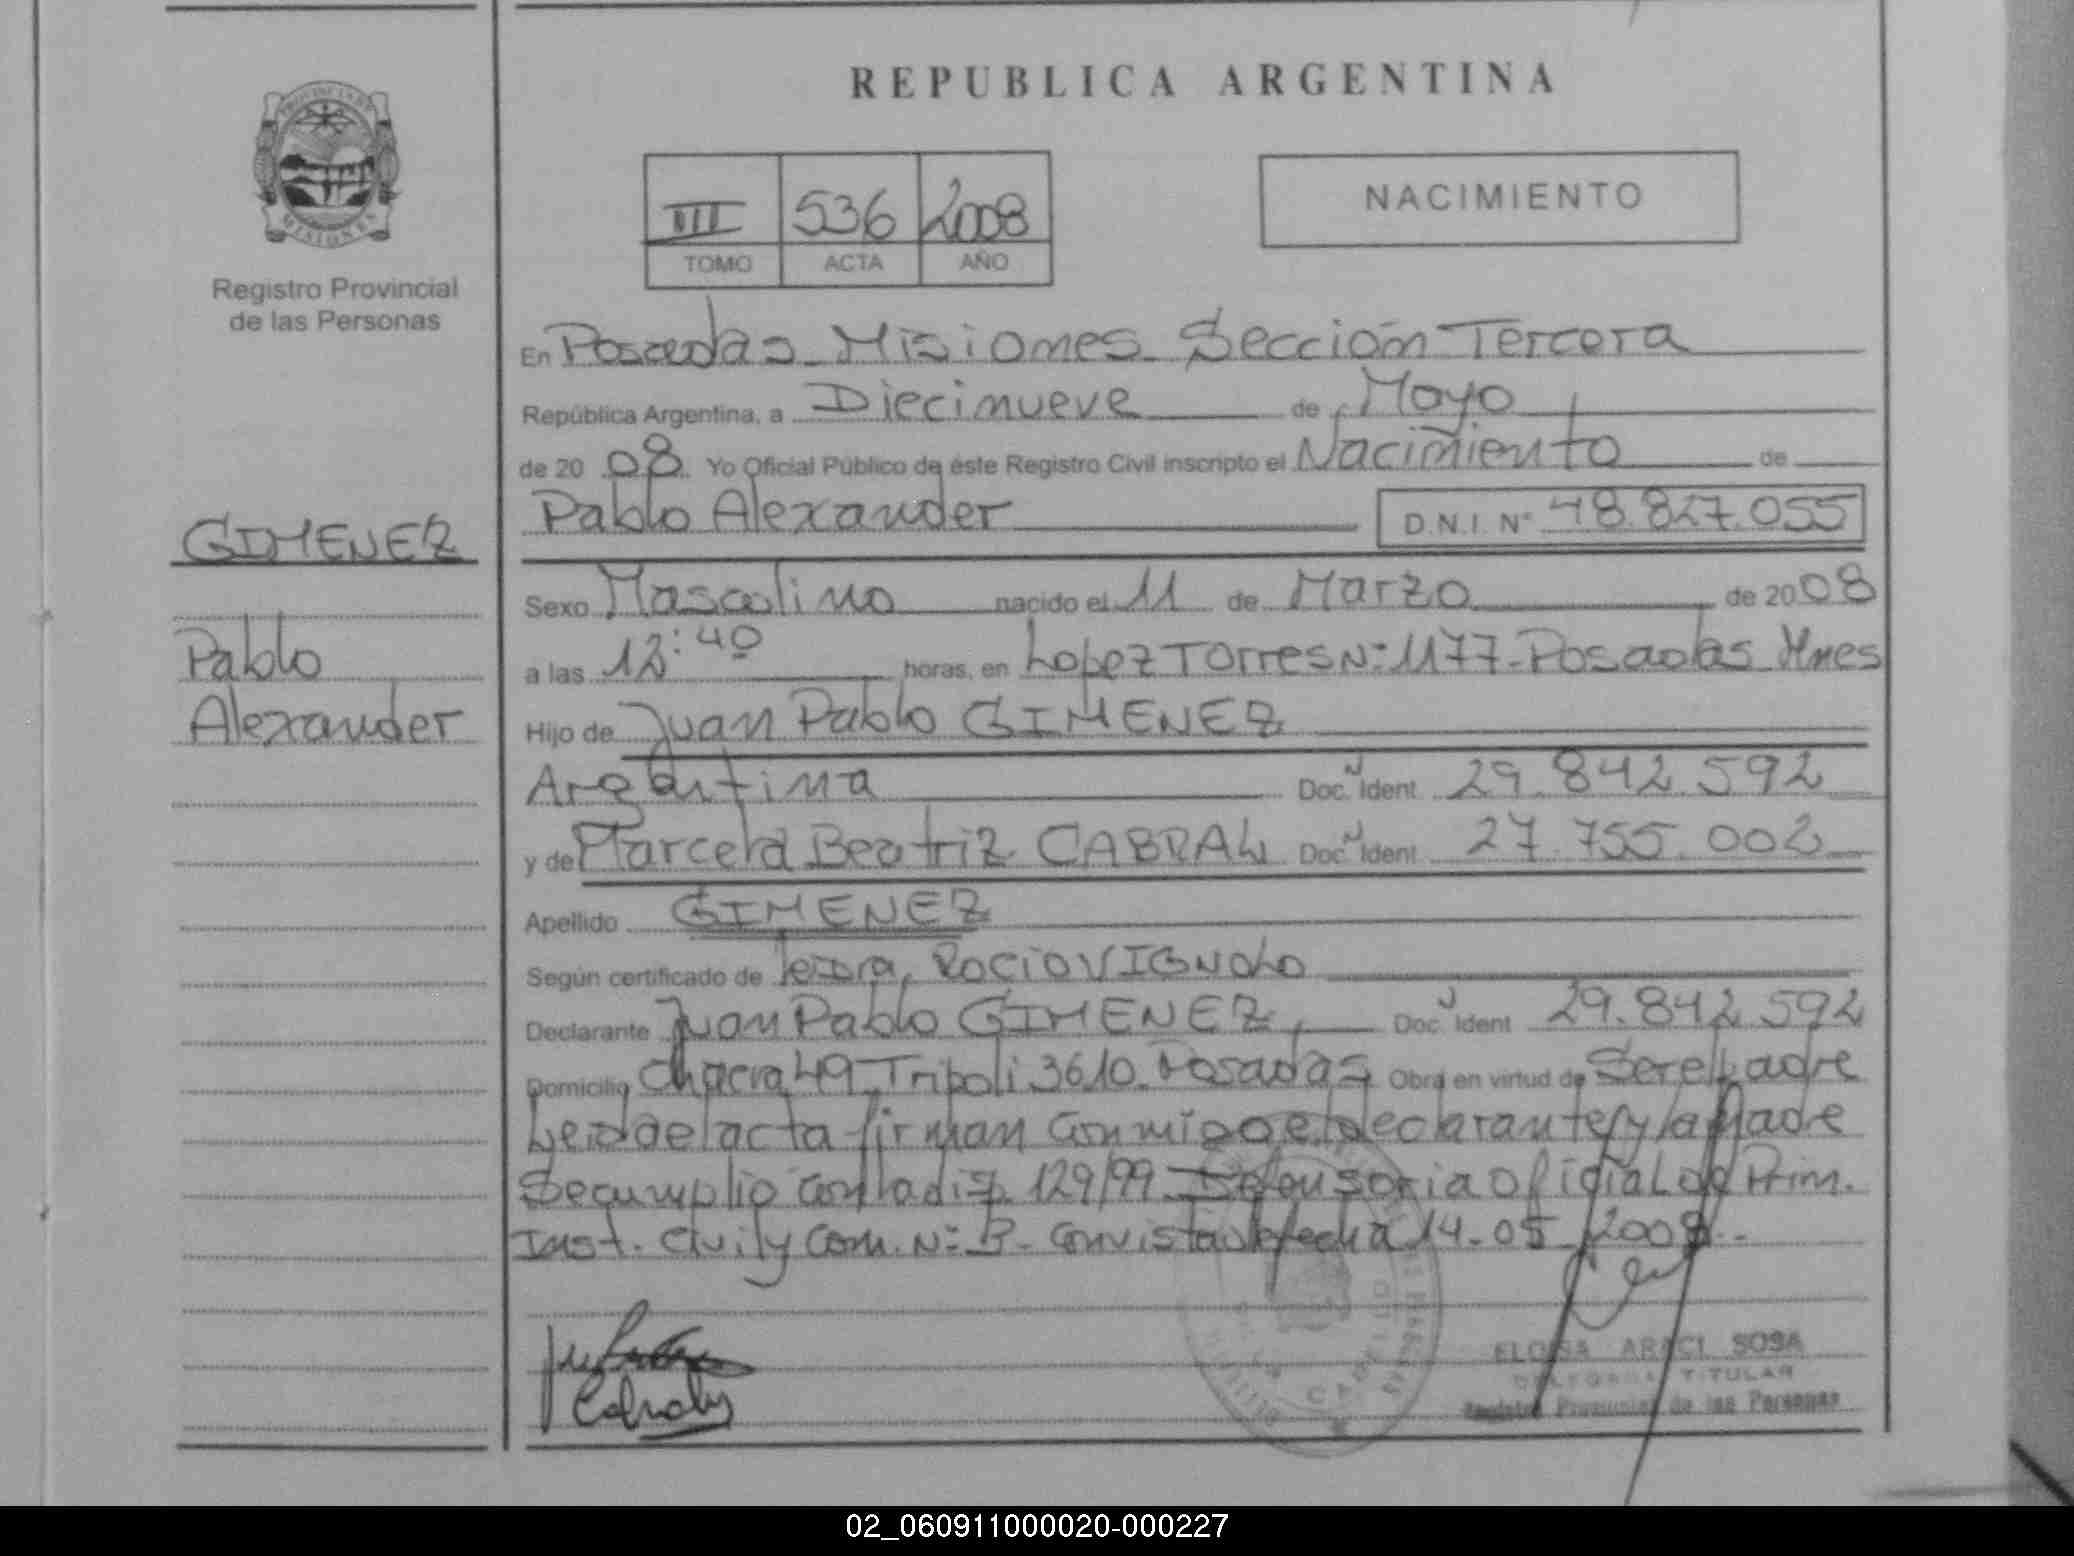 REPUBLICA ARGENTINA
NACIMIENTO
III 536 2008
TOMO ACTA AÑO
Registro Provincial
de las Personas
GIMENEZ
Pablo
Alexander
En Posadas Misiones Sección Tercera
República Argentina, a Diecinueve de Mayo
de 20 08 Yo Oficial Público de éste Registro Civil inscripto el Nacimiento de
Pablo Alexander D.N.I. Nº 48.827.055
Sexo Masculino nacido el 11 de Marzo de 20 08
a las 12:40 horas, en Lopez Torres Nº 1177-Posadas Mnes
Hijo de Juan Pablo GIMENEZ
Argentina Doc. Ident 29.842.592
y de Marcela Beatriz CABRAL Doc. Ident 27.755.002
Apellido GIMENEZ
Según certificado de ROCIO VIGNOLO
Declarante Juan Pablo GIMENEZ, Doc. Ident 29.842.592
Domicilio Chacra 49 Tripoli 3610. Posadas Obra en virtud de Ser el padre
Leida el acta firman conmigo el declarante y la Madre
Se cumplio con la disp. 129/99 Defensoria Oficial de Prim.
Inst. Civil y Com. Nº 3- con vista de fecha 14-05-2008.-
ELOISA ARACI SOSA
DELEGADA TITULAR
Registro Provincial de las Personas
02_060911000020-000227